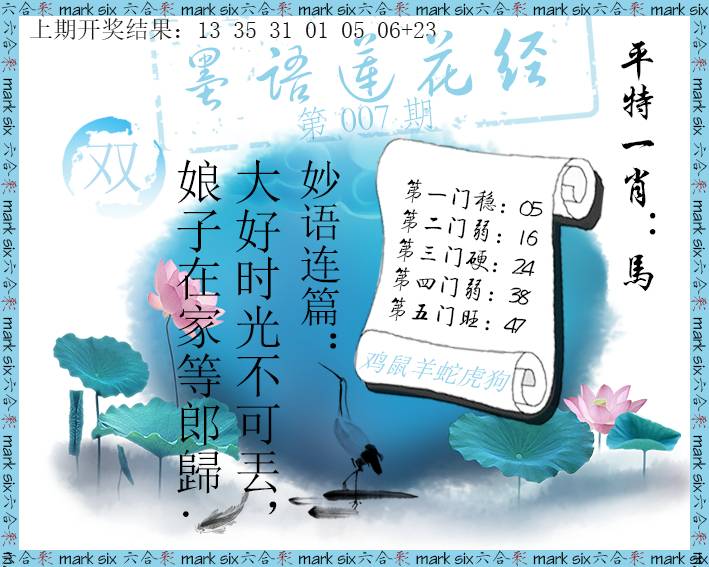 上期开奖结果：13 35 31 01 05 06+23
墨語蓮花经
第 007 期
双
平特一肖：馬
妙语连篇：
大好时光不可丟，
娘子在家等郎歸．
第一门稳：05
第二门弱：16
第三门硬：24
第四门弱：38
第五门旺：47
鸡鼠羊蛇虎狗
六合彩 mark six 六合彩 mark six 六合彩 mark six 六合彩 mark six 六合彩 mark six